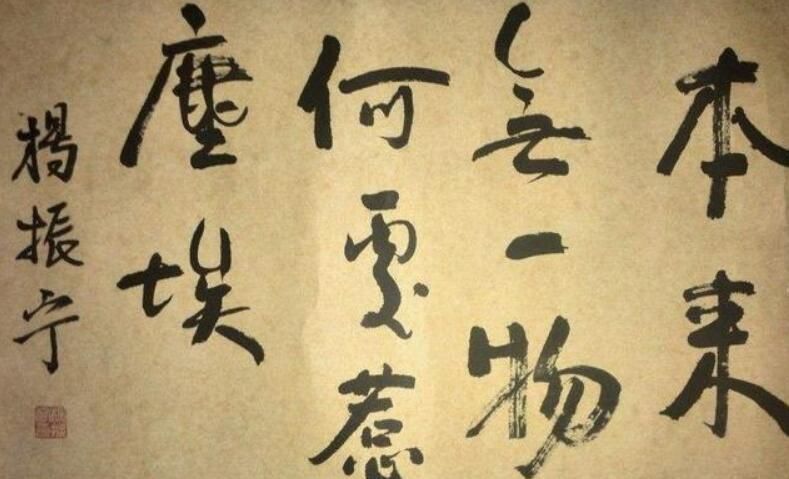 本来
無一物
何處惹
塵埃
楊振宁